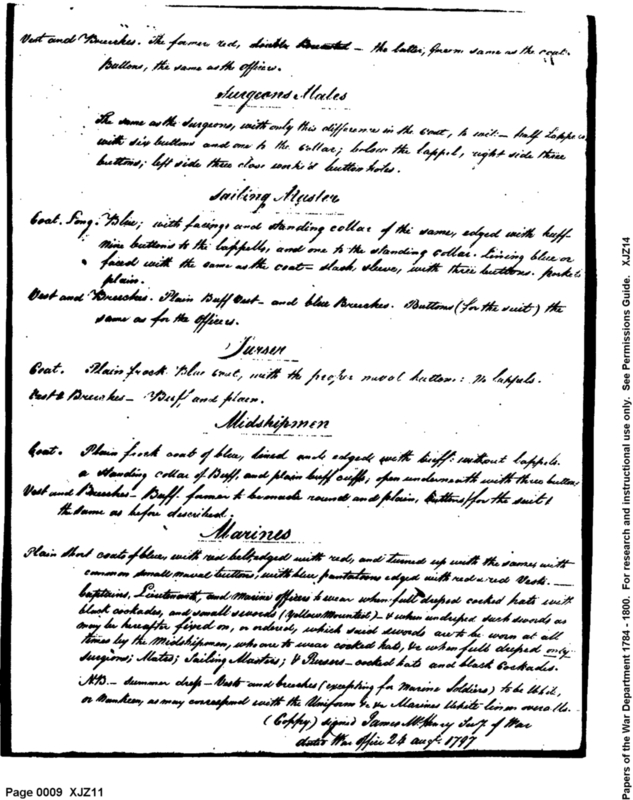 Vest and Breeches. The former red, double Breasted — the latter, Green same as the coat.
Buttons, the same as the officers.
Surgeons Mates
The same as the Surgeons, with only this difference in the coat, to wit — half Lappels
with six buttons and one to the collar; below the lappel, right side three
buttons; left side three close work'd button holes.
Sailing Master
Coat. Long. Blue; with facings and standing collar of the same, edged with buff.
nine buttons to the lappells, and one to the standing collar. Lining blue or
faced with the same as the coat — slash sleeve, with three buttons. pockets
plain.
Vest and Breeches. Plain Buff Vest — and blue Breeches. Buttons (for the suit) the
same as for the Officers.
Purser
Coat. Plain frock Blue coat, with the proper naval button: No Lappels.
Vest & Breeches — Buff, and plain.
Midshipmen
Coat. Plain frock coat of blue, lined and edged with buff: without lappels.
a standing collar of Buff, and plain buff cuffs, open underneath with three buttons
Vest and Breeches — Buff. former to be made round and plain, Buttons/for the suit/
the same as before described.
Marines
Plain short coats of blue, with red belt, edged with red, and turned up with the same, with
common small naval buttons, with blue pantaloons edged with red & red Vests. —
Captains, Lieutenants, and Marine officers to wear when full dressed cocked hats with
black cockades, and small swords (Yellow Mounted) — & when undressed such swords as
may be hereafter fixed on, or ordered, which said swords are to be worn at all
times by the Midshipmen, who are to wear cocked hats, &c when full dressed only —
Surgeons; Mates; Sailing Masters; & Pursers — cocked hats and black Cockades.
NB — Summer dress — Vests and breeches (excepting for Marine Soldiers) to be White,
or Nankeen, as may correspond with the Uniform &c &c Marines White linen overalls.
(Coppy) signed James McHenry Secy. of War
dated War Office 24 augt. 1797
Papers of the War Department 1784 - 1800. For research and instructional use only. See Permissions Guide. XJZ14
Page 0009 XJZ11